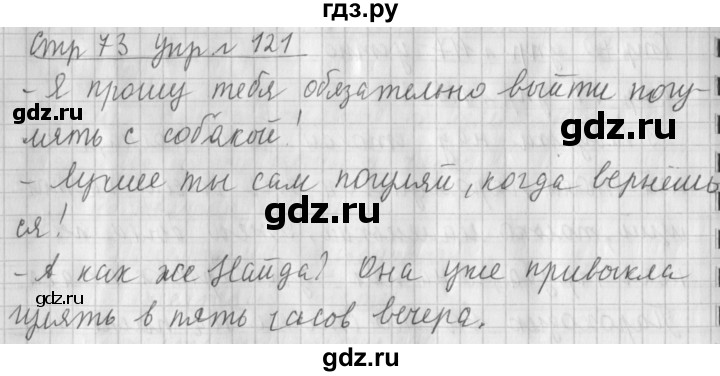 гдз.ру
Стр 73 упр № 121
- Я прошу тебя обязательно выйти погу-
лять с собакой!
gdz.ru
gdz.ru
- Лучше ты сам погуляй, когда вернёшь
ся!
gdz.ru
- А как же Найда? Она уже привыкла
гулять в пять часов вечера.
gdz.ru
gdz.ru
gdz.ru